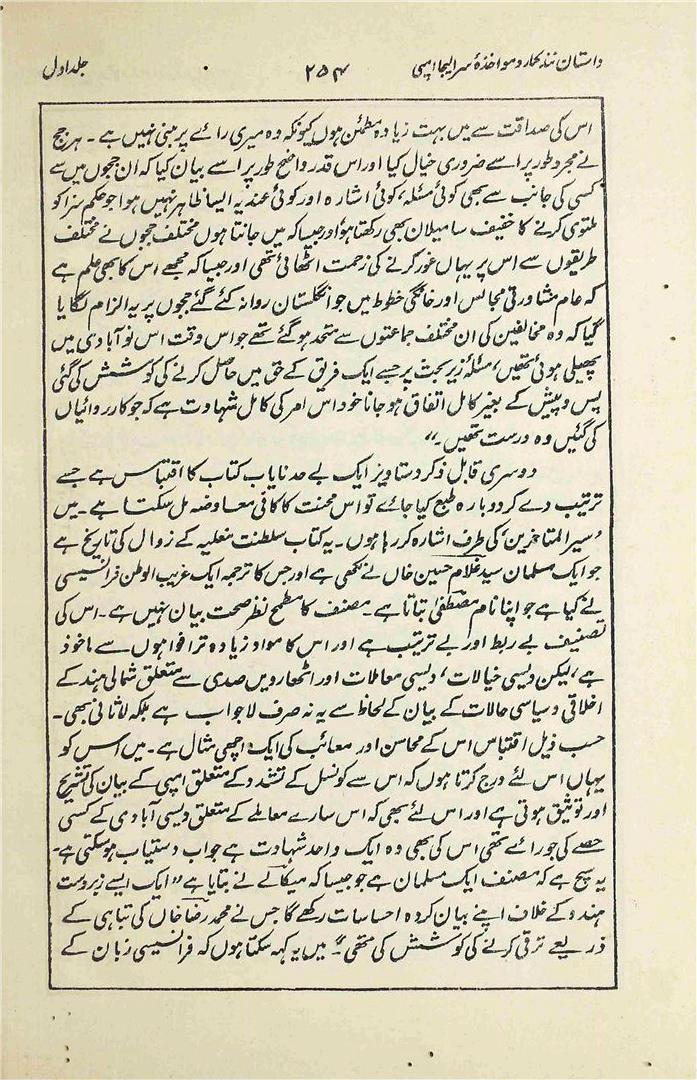 داستان نند کمار و مواخذۂ سر ایلیجا امپی
۲۵۴
جلد اول
اس کی صداقت سے میں بہت زیادہ مطمئن ہوں کیونکہ وہ میری رائے پر مبنی نہیں ہے ۔ ہر جج
نے مجرد طور پر اسے ضروری خیال کیا اور اس قدر واضح طور پر اسے بیان کیا کہ ان ججوں میں سے
کسی کی جانب سے بھی کوئی مسئلہ، کوئی اشارہ اور کوئی عندیہ ایسا ظاہر نہیں ہوا جو حکم سزا کو
ملتوی کرنے کا خفیف سا میلان بھی رکھتا ہو اور جیسا کہ میں جانتا ہوں مختلف ججوں نے مختلف
طریقوں سے اس پر یہاں غور کرنے کی زحمت اٹھائی تھی اور جیسا کہ مجھے اس کا بھی علم ہے
کہ عام مشاورتی مجالس اور خانگی خطوط میں جو انگلستان روانہ کئے گئے ججوں پر یہ الزام لگایا
گیا کہ وہ مخالفین کی ان مختلف جماعتوں سے متحد ہو گئے تھے جو اس وقت اس نو آبادی میں
پھیلی ہوئی تھیں، مسئلۂ زیر بحث پر جسے ایک فریق کے حق میں حاصل کرنے کی کوشش کی گئی
پس و پیش کے بغیر کامل اتفاق ہو جانا خود اس امر کی کامل شہادت ہے کہ جو کارروائیاں
کی گئیں وہ درست تھیں ۔"
دوسری قابل ذکر دستاویز ایک بے حد نایاب کتاب کا اقتباس ہے جسے
ترتیب دے کر دوبارہ طبع کیا جائے تو اس محنت کا کافی معاوضہ مل سکتا ہے ۔ میں
'سیر المتاخرین' کی طرف اشارہ کر رہا ہوں ۔ یہ کتاب سلطنت مغلیہ کے زوال کی تاریخ ہے
جو ایک مسلمان سید غلام حسین خاں نے لکھی ہے اور جس کا ترجمہ ایک غریب الوطن فرانسیسی
نے کیا ہے جو اپنا نام مصطفیٰ بتاتا ہے ۔ مصنف کا مطمح نظر صحت بیان نہیں ہے ۔ اس کی
تصنیف بے ربط اور بے ترتیب ہے اور اس کا مواد زیادہ تر افواہوں سے ماخوذ
ہے، لیکن دیسی خیالات، دیسی معاملات اور اٹھارویں صدی سے متعلق شمالی ہند کے
اخلاقی و سیاسی حالات کے بیان کے لحاظ سے یہ نہ صرف لاجواب ہے بلکہ لاثانی بھی ۔
حسب ذیل اقتباس اس کے محاسن اور معائب کی ایک اچھی مثال ہے ۔ میں اس کو
یہاں اس لئے درج کرتا ہوں کہ اس سے کونسل کے تشدد کے متعلق امپی کے بیان کی تشریح
اور توثیق ہوتی ہے اور اس لئے بھی کہ اس سارے معاملے کے متعلق دیسی آبادی کے کسی
حصے کی جو رائے تھی اس کی بھی وہ ایک واحد شہادت ہے جو اب دستیاب ہو سکتی ہے۔
یہ سچ ہے کہ مصنف ایک مسلمان ہے جو جیسا کہ میکالے نے بتایا ہے "ایک ایسے زبردست
ہندو کے خلاف اپنے بیان کردہ احساسات رکھے گا جس نے محمد رضا خاں کی تباہی کے
ذریعے ترقی کرنے کی کوشش کی تھی"۔ میں یہ کہہ سکتا ہوں کہ فرانسیسی زبان کے